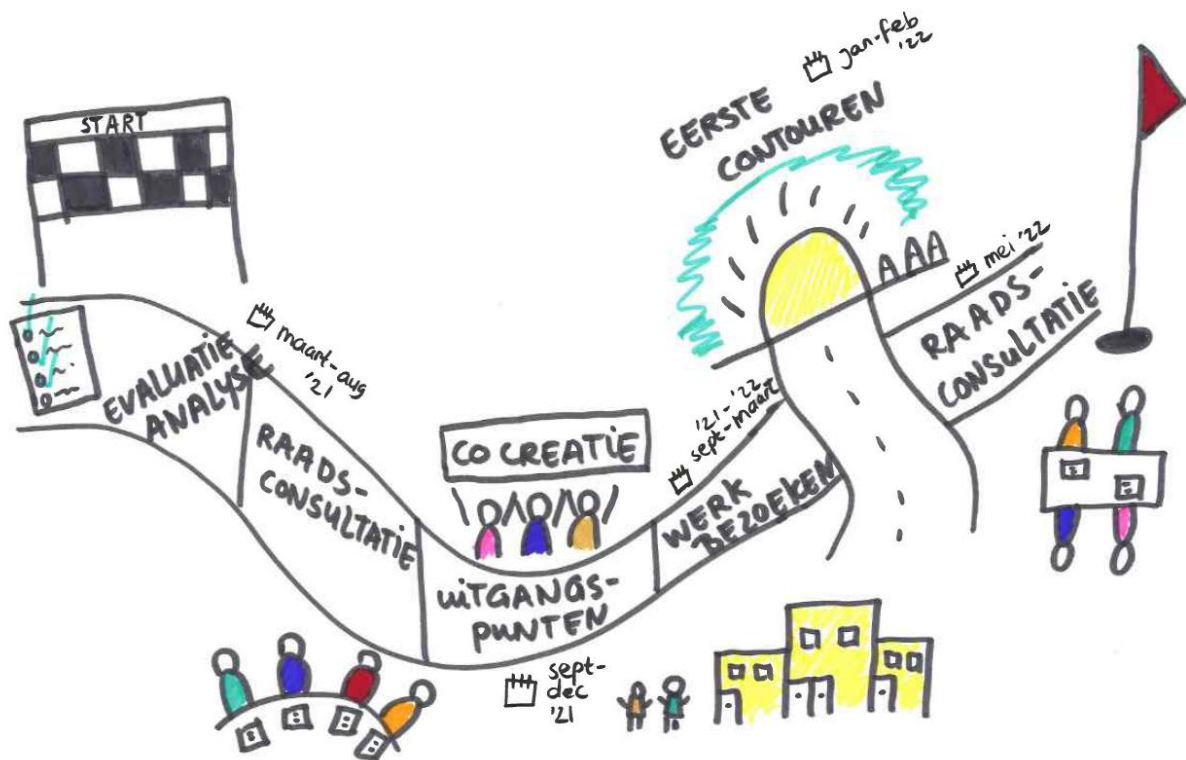 START
EVALUATIE
ANALYSE
maart-aug
'21
RAADS-
CONSULTATIE
CO CREATIE
UITGANGS-
PUNTEN
sept-
dec
'21
'21-'22
sept-maart
WERK
BEZOEKEN
jan-feb
'22
EERSTE
CONTOUREN
mei '22
RAADS-
CONSULTATIE